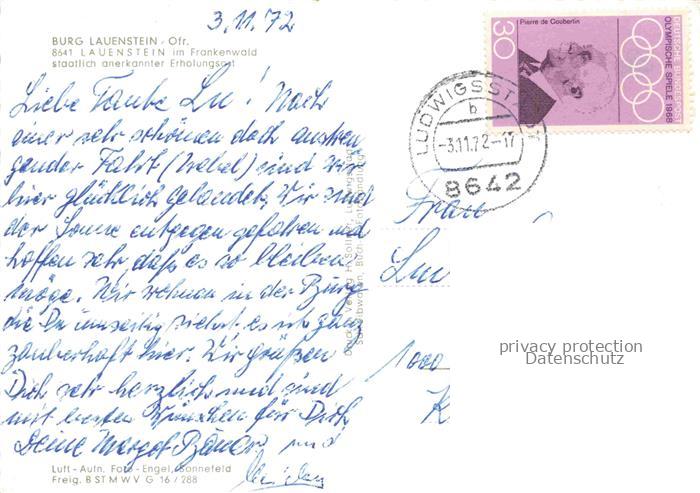 3.11.72
BURG LAUENSTEIN, Ofr.
8641 LAUENSTEIN im Frankenwald
staatlich anerkannter Erholungsort
Liebe Tante Lu! Nach
einer sehr schönen doch anstren-
gender Fahrt (Nebel) sind wir
hier glücklich gelandet. Wir sind
der Sonne entgegen gefahren und
hoffen sehr daß es so bleiben
möge. Wir wohnen in der Burg
die Du umseitig siehst. es ist ganz
zauberhaft hier. Wir grüßen
Dich sehr herzlich und sind
mit besten Wünschen für Dich
Deine Margot und
Luft-Aufn. Foto-Engel, Sonnefeld
Freig. BSTMWV G 16/288
Pierre de Coubertin
30
DEUTSCHE BUNDESPOST
OLYMPISCHE SPIELE 1968
b
-3.11.72-17
8642
Frau
Lu
1000
K
privacy protection
Datenschutz